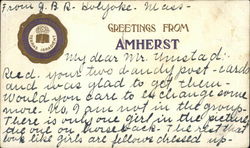 From J.B.R. Holyoke. Mass-
GREETINGS FROM
AMHERST
My dear Mr. Umstad:
Recd. your two dandy post-cards
and was glad to get them.
Would you care to exchange some
more. No I am not in the group.
There is only one girl in the picture,
the one on horse back. The rest that
look like girls are fellows dressed up-